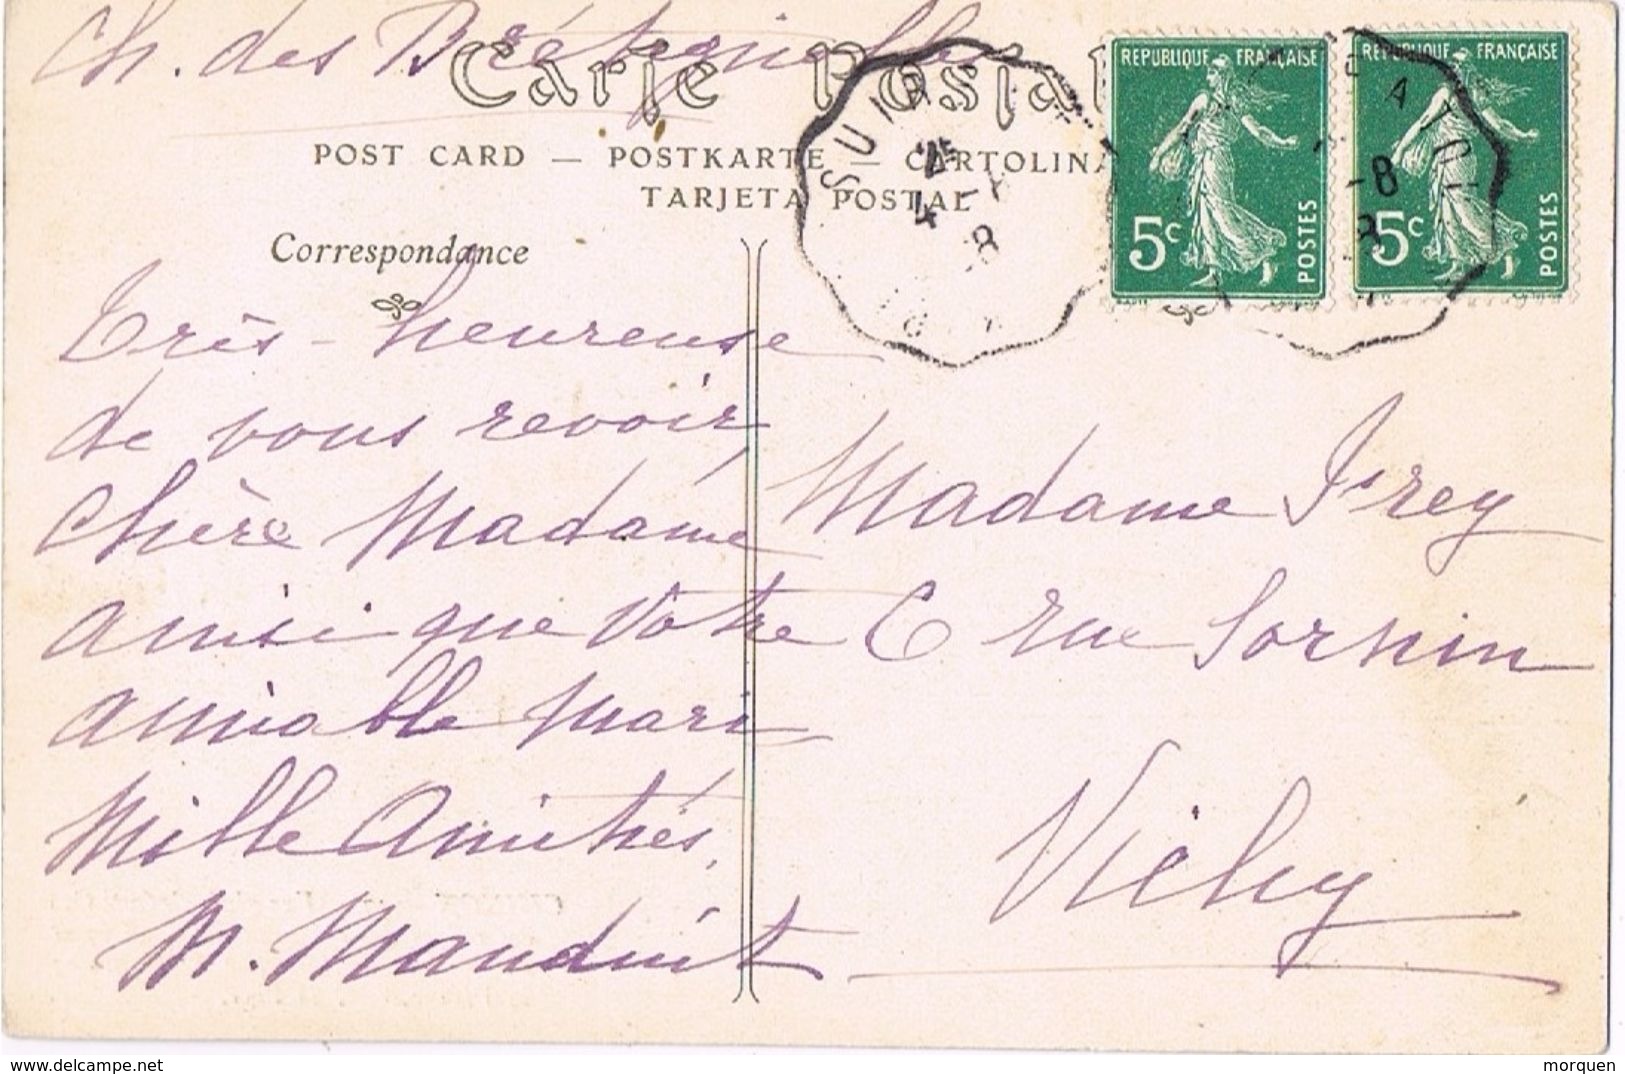 Ch. des Brétignolles
Carte Postale
POST CARD — POSTKARTE — CARTOLINA
TARJETA POSTAL
REPUBLIQUE FRANÇAISE
5c
POSTES
REPUBLIQUE FRANÇAISE
5c
POSTES
4 -
8
-8
Correspondance
Très-heureuse
de vous revoir,
chère Madame
ainsi que votre
aimable mari
Mille Amitiés,
M. Mauduit
Madame Frey
6 rue Sornin
Vichy
delcampe.net
morquen